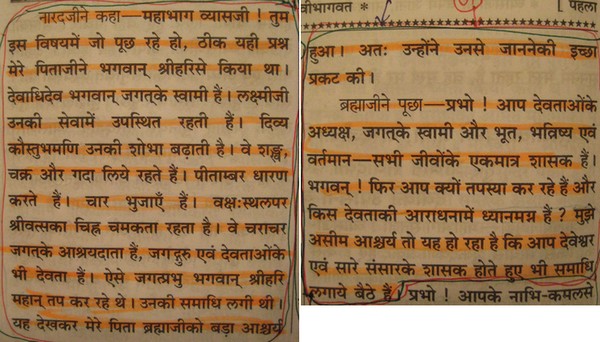 नारदजीने कहा—महाभाग व्यासजी ! तुम
इस विषयमें जो पूछ रहे हो, ठीक यही प्रश्न
मेरे पिताजीने भगवान् श्रीहरिसे किया था।
देवाधिदेव भगवान् जगत्‌के स्वामी हैं। लक्ष्मीजी
उनकी सेवामें उपस्थित रहती हैं। दिव्य
कौस्तुभमणि उनकी शोभा बढ़ाती है। वे शङ्ख,
चक्र और गदा लिये रहते हैं। पीताम्बर धारण
करते हैं। चार भुजाएँ हैं। वक्षःस्थलपर
श्रीवत्सका चिह्न चमकता रहता है। वे चराचर
जगत्‌के आश्रयदाता हैं, जगद्गुरु एवं देवताओंके
भी देवता हैं। ऐसे जगत्प्रभु भगवान् श्रीहरि
महान् तप कर रहे थे। उनकी समाधि लगी थी।
यह देखकर मेरे पिता ब्रह्माजीको बड़ा आश्चर्य
वीभागवत * [ पहला
हुआ। अतः उन्होंने उनसे जाननेकी इच्छा
प्रकट की।
ब्रह्माजीने पूछा—प्रभो ! आप देवताओंके
अध्यक्ष, जगत्‌के स्वामी और भूत, भविष्य एवं
वर्तमान—सभी जीवोंके एकमात्र शासक हैं।
भगवन् ! फिर आप क्यों तपस्या कर रहे हैं और
किस देवताकी आराधनामें ध्यानमग्न हैं ? मुझे
असीम आश्चर्य तो यह हो रहा है कि आप देवेश्वर
एवं सारे संसारके शासक होते हुए भी समाधि
लगाये बैठे हैं। प्रभो ! आपके नाभि-कमलसे